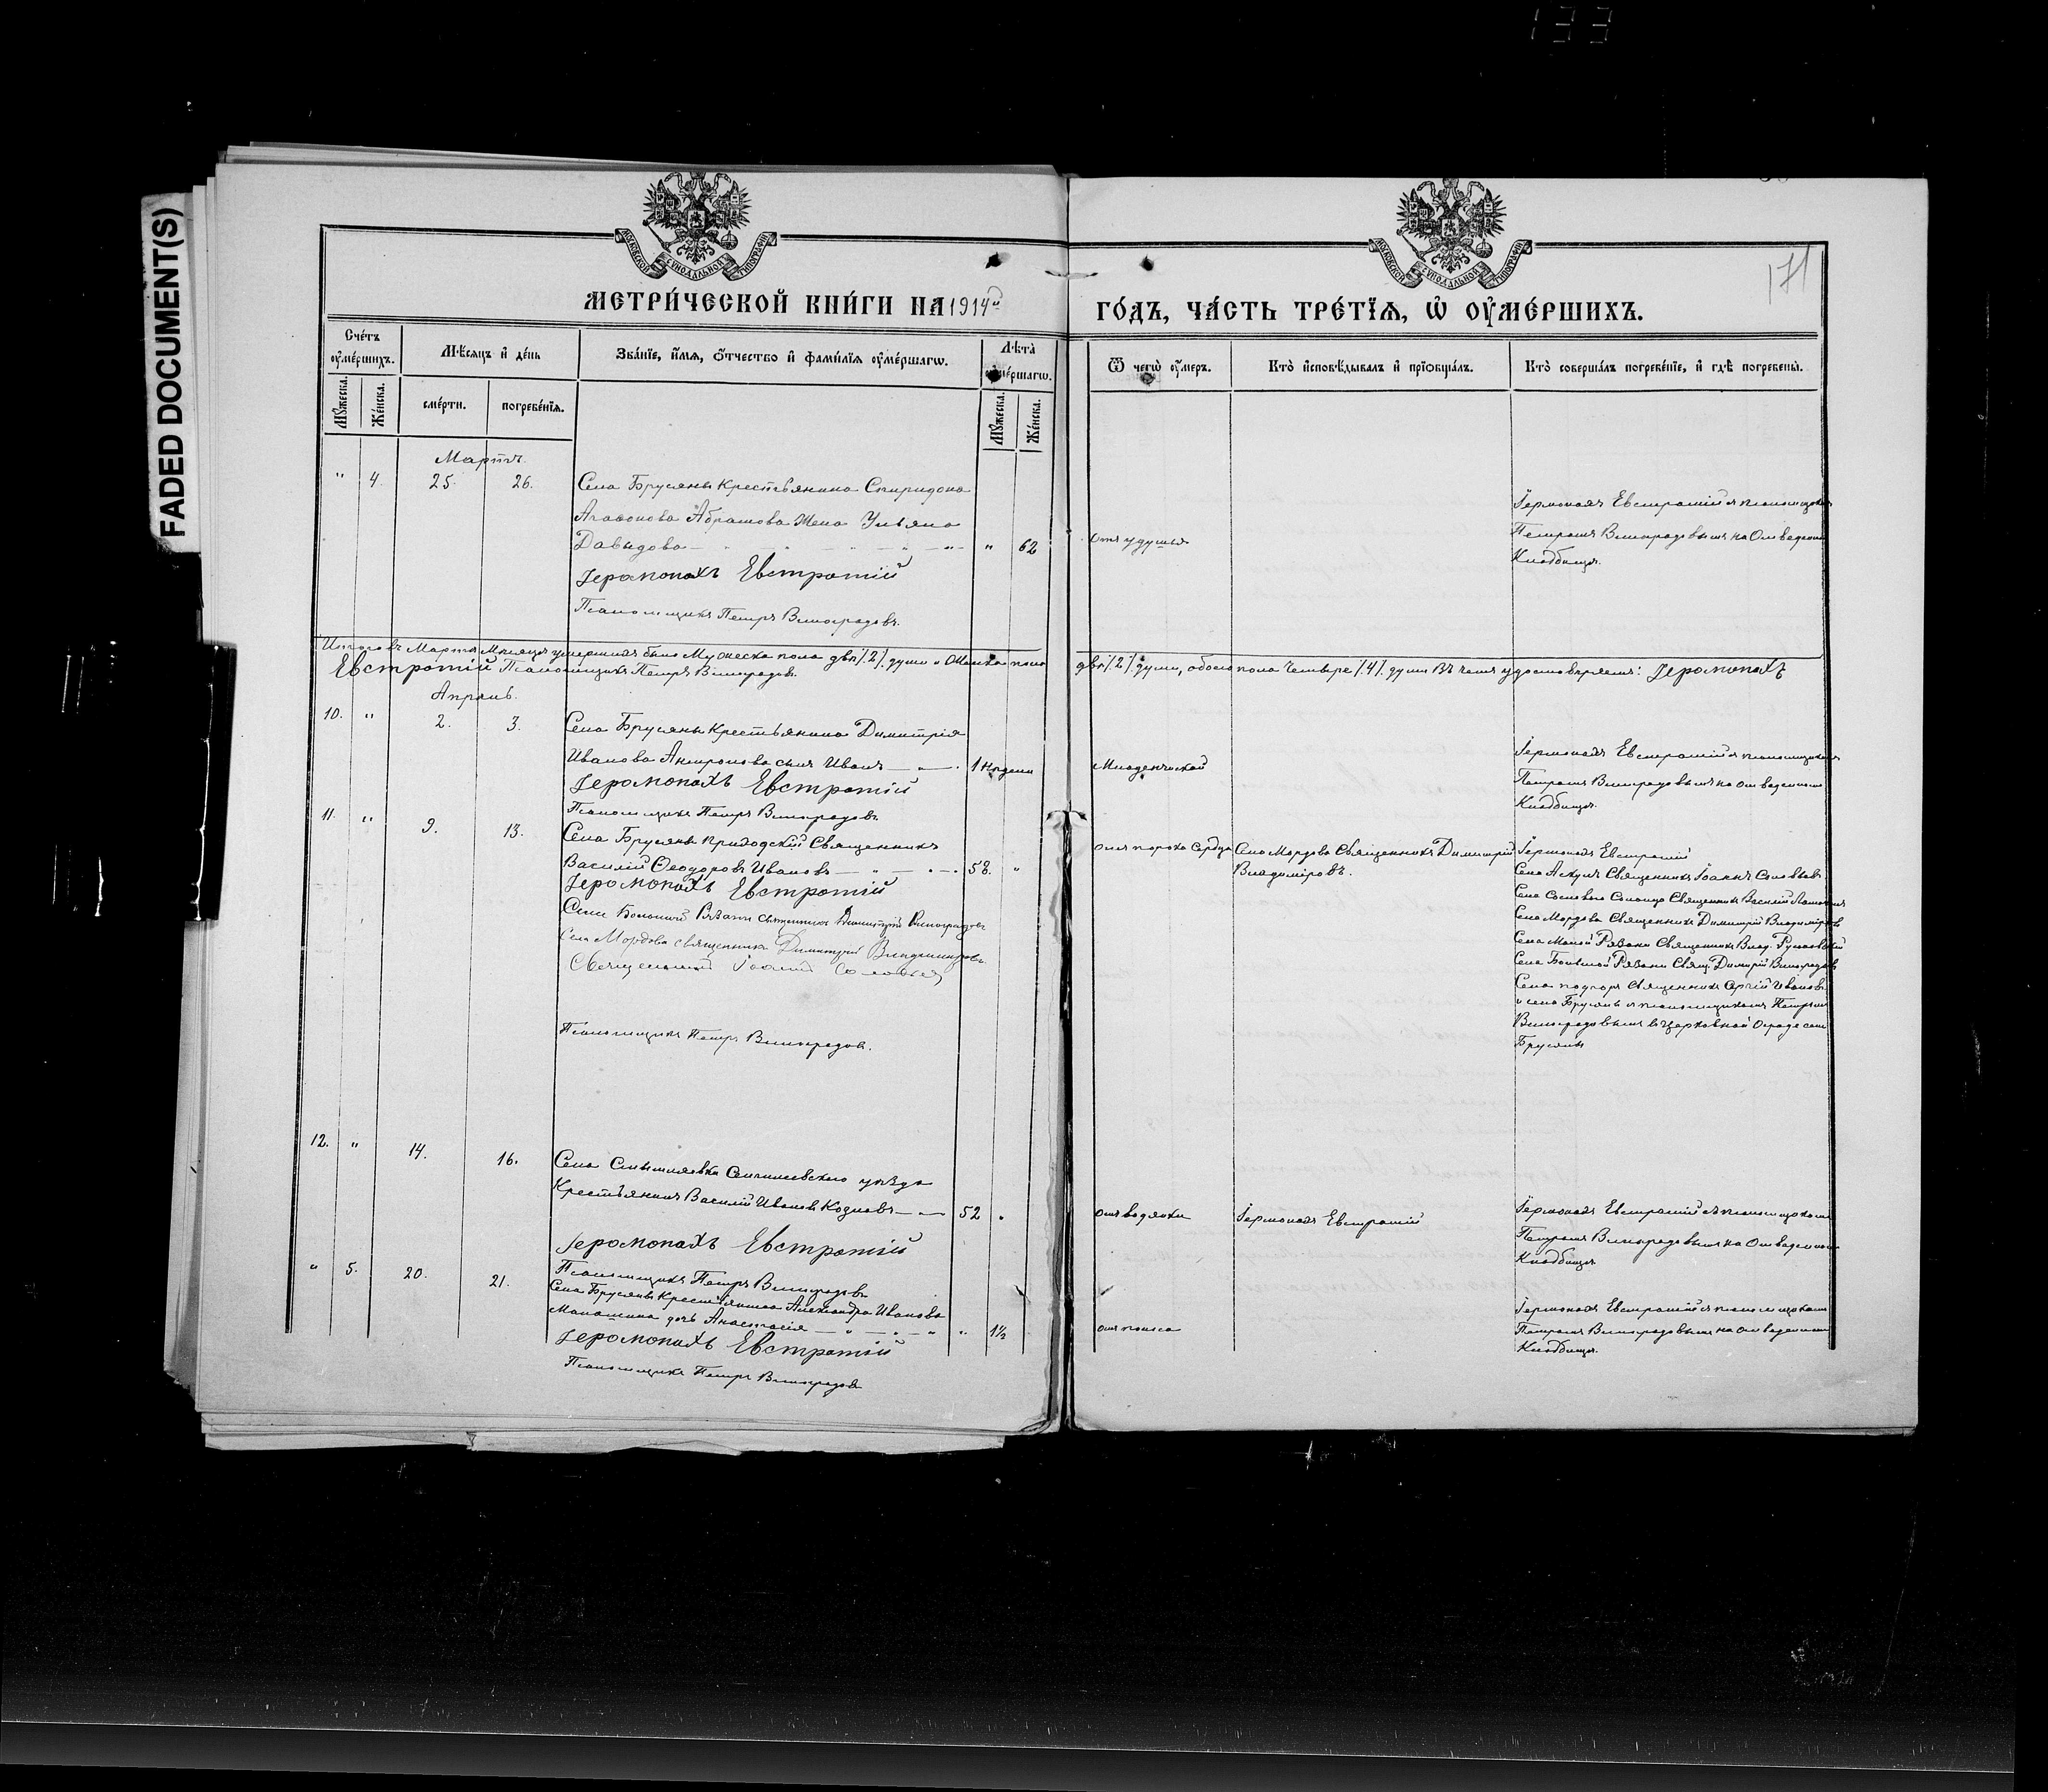 133
FADED DOCUMENT(S)
МОСКОВСКОЙ СѴНОДАЛЬНОЙ ТИПОГРАФІИ
МОСКОВСКОЙ СѴНОДАЛЬНОЙ ТИПОГРАФІИ
171
МЕТРИ́ЧЕСКОЙ КНИ́ГИ НА 1914й ГО́ДЪ, ЧА́СТЬ ТРЕ́ТІѦ, Ѡ҆ ОУ҆МЕ́РШИХЪ.
Сче́тъ оу҆ме́ршихъ.
Мꙋ́жеска.
Же́нска.
Мѣ́сяцъ и҆ де́нь
сме́рти.
погребе́нїя.
Зва́нїе, и҆́мя, ѻ҆́тчество и҆ фами́лїя оу҆ме́ршагѡ.
Лѣ́та оу҆ме́ршагѡ.
Мꙋ́жеска.
Же́нска.
Ѿ чегѡ̀ оу҆́меръ.
Кто̀ и҆сповѣ́дывалъ и҆ прїѡбща́лъ.
Кто̀ соверша́лъ погребе́нїе, и҆ гдѣ̀ погребены̀.
Мартъ.
" 4. 25. 26. Села Брусяны Крестьянина Спиридона
Агафонова Абрамова Жена Ульяна
Давыдова " 62 отъ удушья
Іеромонахъ Евстратій
Псаломщикъ Петръ Виноградовъ.
Іеромонахъ Евстратій съ псаломщикомъ
Петромъ Виноградовымъ на Отведенномъ
Кладбищѣ.
Итого въ Мартѣ Мѣсяцѣ умершихъ было Мужеска пола двѣ /2/ души и Женска пола двѣ /2/ души, обоего пола Четыре /4/ души Въ чемъ удостовѣряемъ: Іеромонахъ
Евстратій Псаломщикъ Петръ Виноградовъ.
Апрѣль.
10. " 2. 3. Села Брусяны Крестьянина Димитрія
Иванова Антропова сынъ Иванъ 1 недѣли Младенческой
Іеромонахъ Евстратій
Псаломщикъ Петръ Виноградовъ
Іеромонахъ Евстратій съ псаломщикомъ
Петромъ Виноградовымъ на отведенномъ
Кладбищѣ.
11. " 9. 13. Села Брусяны приходскій Священникъ
Василій Ѳеодоровъ Ивановъ 58. " отъ порока Сердца
Іеромонахъ Евстратій
Села Большой Рязани священникъ Димитрій Виноградовъ
Села Мордова священникъ Димитрій Владиміровъ
Священникъ Іоаннъ Соловьевъ
Псаломщикъ Петръ Виноградовъ.
Села Мордова Священникъ Димитрій
Владиміровъ.
Іеромонахъ Евстратій
Села Аскулъ Священникъ Іоаннъ Соловьевъ
Села Соснова Солонца Священникъ Василій
Села Мордова Священникъ Димитрій Владиміровъ
Села Малой Рязани Священникъ Влад.
Села Большой Рязани Свящ. Димитрій Виноградовъ
Села подгоръ Священникъ Сергій Ивановъ
и села Брусянъ съ псаломщикомъ Петромъ
Виноградовымъ въ Церковной Оградѣ села
Брусяны
12. " 14. 16. Села Смышляевки Сенгилеевскаго уѣзда
Крестьянинъ Василій Ивановъ Козловъ 52 " отъ водянки Іеромонахъ Евстратій
Іеромонахъ Евстратій
Псаломщикъ Петръ Виноградовъ
Іеромонахъ Евстратій съ псаломщикомъ
Петромъ Виноградовымъ на Отведенномъ
Кладбищѣ.
" 5. 20. 21. Села Брусяны Крестьянина Александра Иванова
дочь Анастасія " 1½ отъ поноса
Іеромонахъ Евстратій
Псаломщикъ Петръ Виноградовъ
Іеромонахъ Евстратій съ псаломщикомъ
Петромъ Виноградовымъ на отведенномъ
Кладбищѣ.